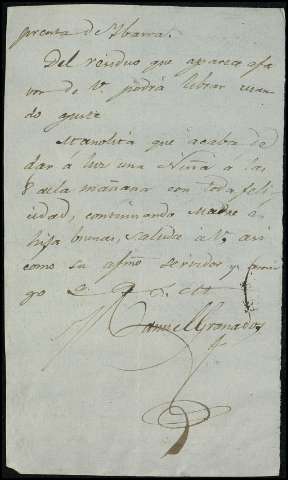 prenta de Ybarra.
Del residuo que aparece afa
vor de V. podrá librar cuan
do guste
Manolita que acaba de
dar á luz una Niña a las
8 de la mañana con toda feli
cidad, continuando Madre e
hija buenas, saluda á V. asi
como su afmo servidor y ami
go
Manuel Granados